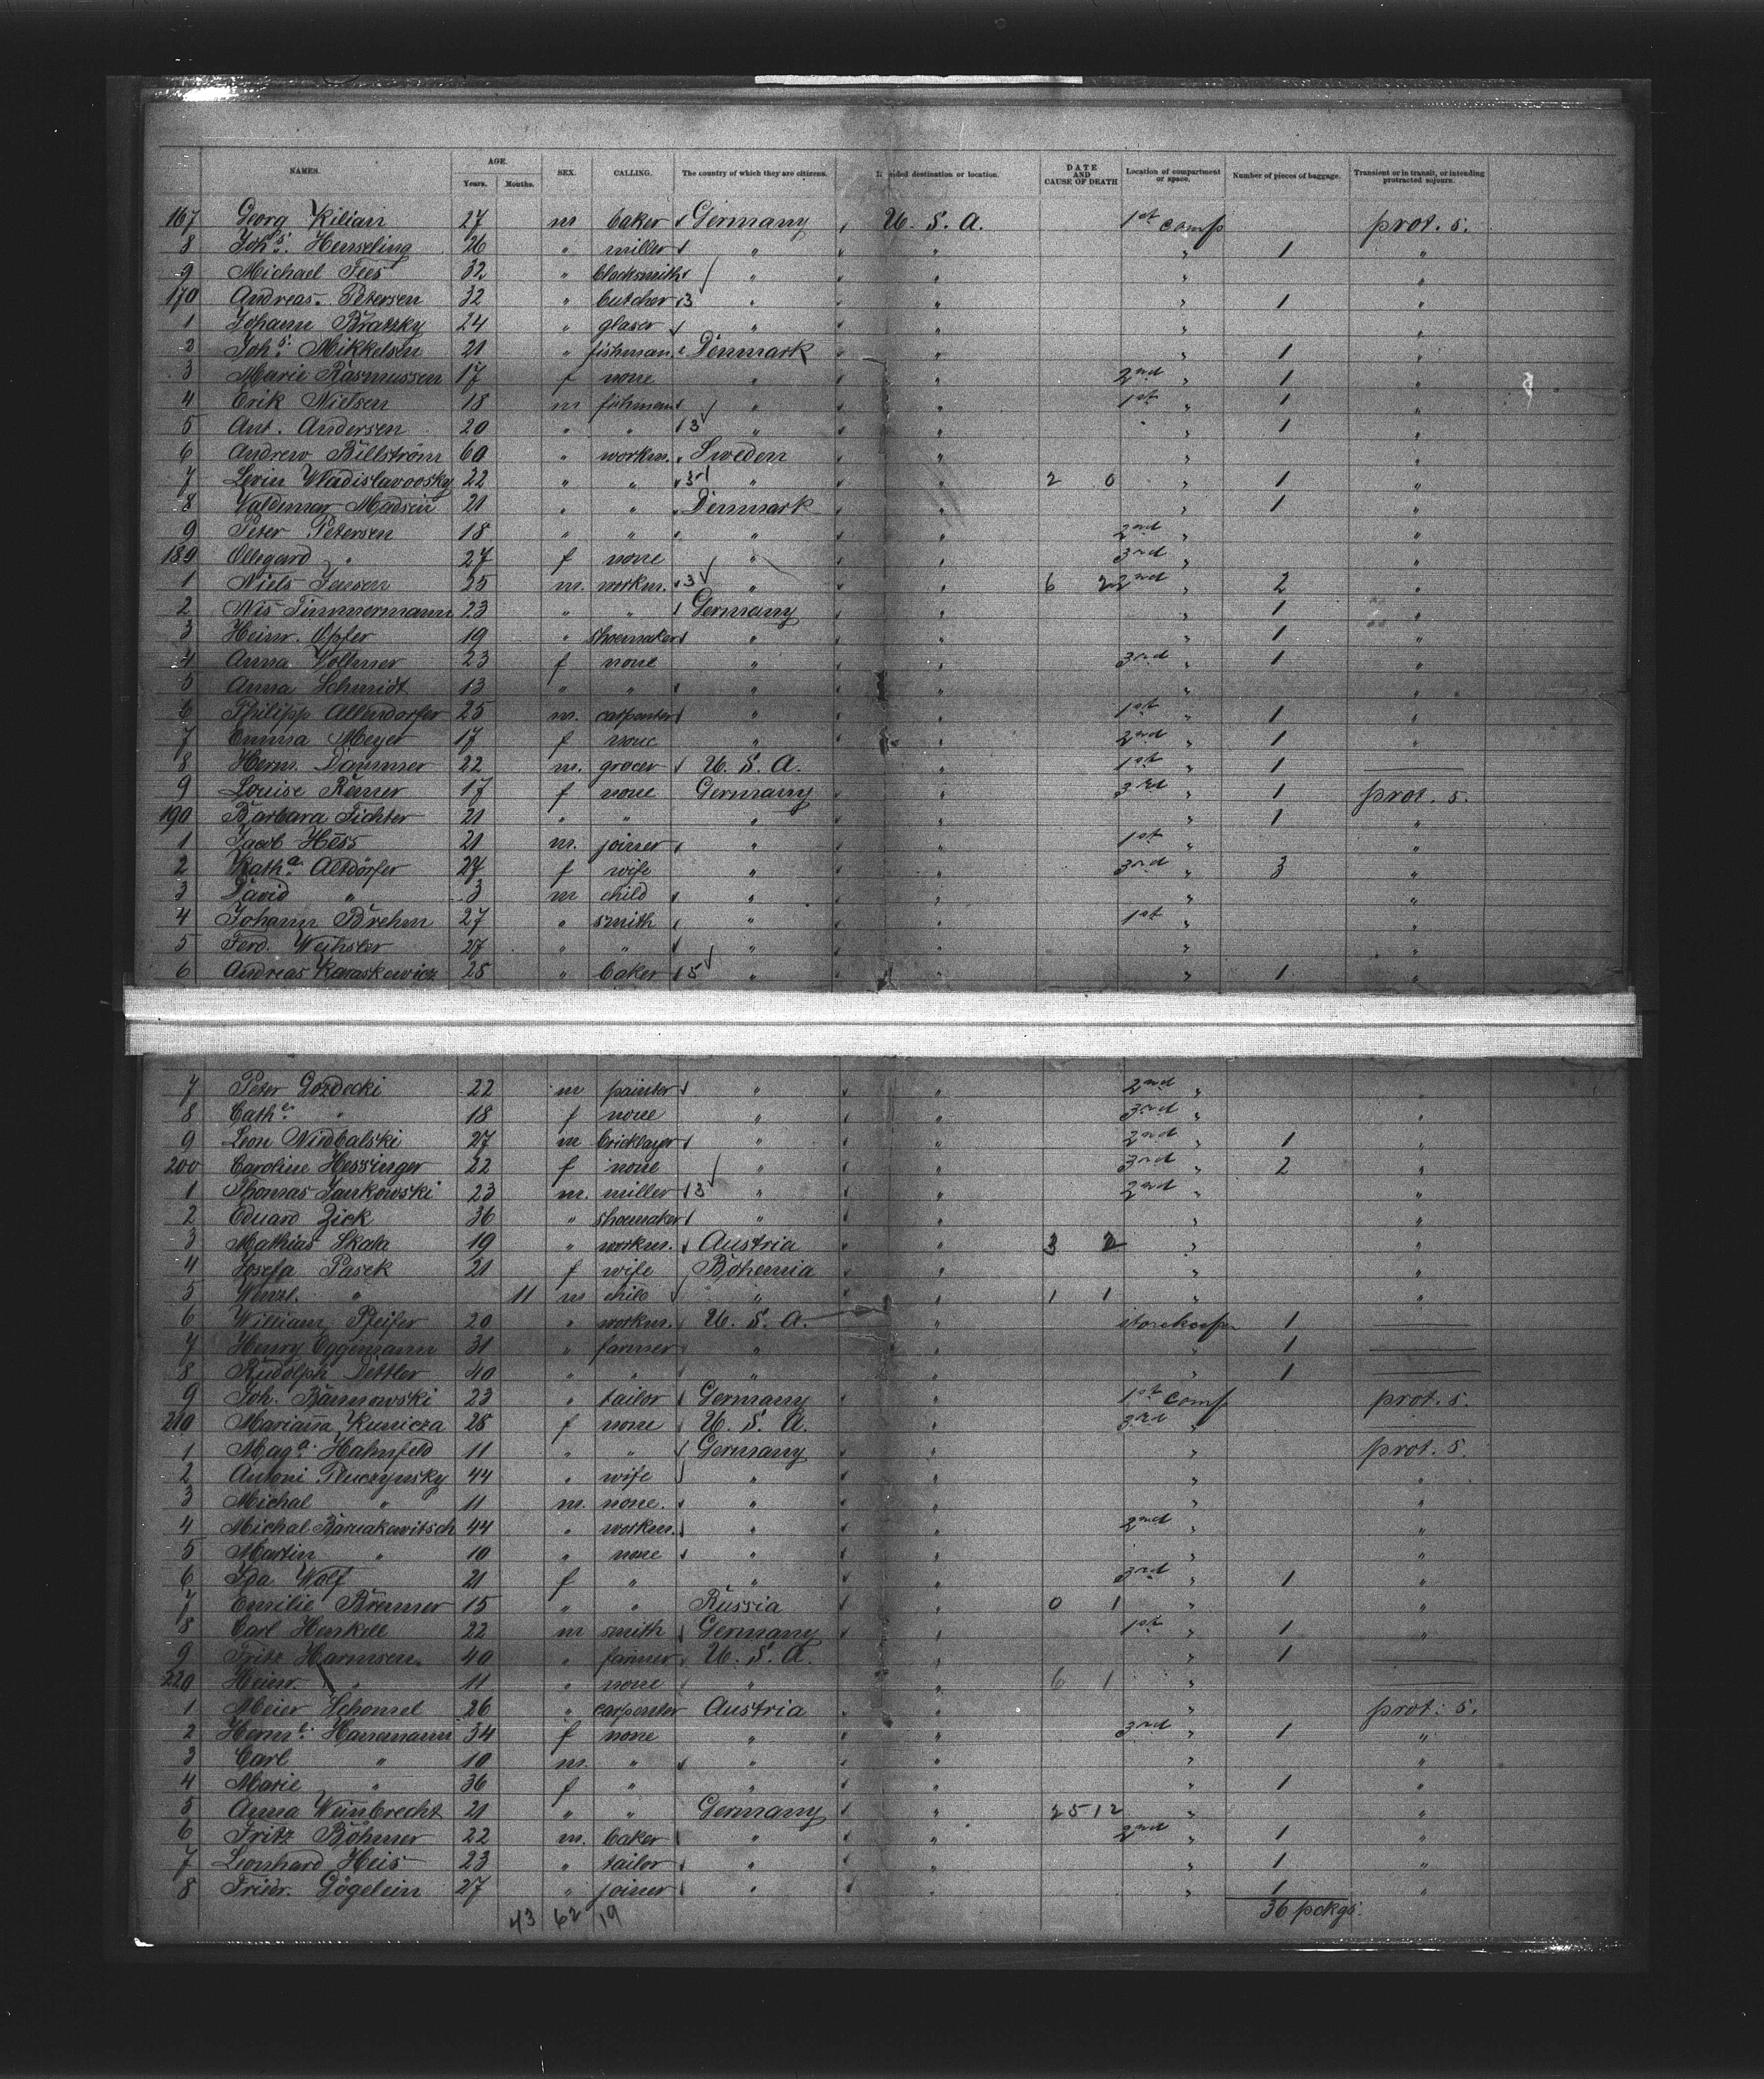 NAMES. AGE. Years. Months. SEX. CALLING. The country of which they are citizens. Intended destination or location. DATE AND CAUSE OF DEATH Location of compartment or space. Number of pieces of baggage. Transient or in transit, or intending protracted sojourn.
167 Georg Kilian 27 m baker Germany U. S. A. 1st comp prot. s.
8 Johs. Henseling 26 " miller " " " 1 "
9 Michael Fees 32 " blacksmith " " " "
170 Andreas Petersen 32 " butcher 3 " " " 1 "
1 Johann Bratzky 24 " glaser " " " "
2 Johs. Mikkelsen 21 " fishman Denmark " " 1 "
3 Marie Rasmussen 17 f none " " 2nd " 1 "
4 Erik Nielsen 18 m fishman " " 1st " 1 "
5 Ant. Andersen 20 " " 3 " " " 1 "
6 Andrew Billström 60 " workm. Sweden " " "
7 Levin Wladislavoosky 22 " " 3 " " 2 0 " 1 "
8 Valdemar Madsen 21 " " Denmark " " 1 "
9 Peter Petersen 18 " " " " 2nd " "
180 Ollegard " 27 f none " " 3rd " "
1 Niels Jensen 25 m. workm. 3 " " 6 2 2nd " 2 "
2 Nis Timmermann 23 " " Germany " " 1 "
3 Heinr. Opfer 19 " shoemaker " " " 1 "
4 Anna Vollmer 23 f none " " 3rd " 1 "
5 Anna Schmidt 13 " " " " " "
6 Philipp Allendorfer 25 m. carpenter " " 1st " 1 "
7 Emma Meyer 17 f none " " 2nd " 1 "
8 Herm. Dammer 22 m. grocer U. S. A. " 1st " 1
9 Louise Römer 17 f none Germany " 3rd " 1 prot. s.
190 Barbara Fichter 21 " " " " " 1 "
1 Jacob Hess 21 m. joiner " " 1st " "
2 Katha. Altdörfer 27 f wife " " 3rd " 3 "
3 David " 3 m child " " " "
4 Johann Brehm 27 " smith " " 1st " "
5 Ferd. Weihsler 27 " " " " " "
6 Andreas Karaskewicz 25 " baker 5 " " " 1 "
7 Peter Gozdecki 22 m painter " " 2nd " "
8 Cathe. " 18 f none " " 3rd " "
9 Leon Niedbalski 27 m bricklayer " " 2nd " 1 "
200 Caroline Hessinger 22 f none " " 3rd " 2 "
1 Thomas Jankowski 23 m. miller 3 " " 2nd " "
2 Eduard Zick 36 " shoemaker " " " "
3 Mathias Skah 19 " workm. Austria " 3 2 " "
4 Josefa Pasek 21 f wife Bohemia " " "
5 Wenzl. " 11 m child " " 1 1 " "
6 William Pfeifer 20 " workm. U. S. A. " 1
7 Henry Eggemann 31 " farmer " " " 1
8 Rudolph Dettler 40 " " " " " 1
9 Joh. Bannowski 23 " tailor Germany " 1st comp prot. s.
210 Marianna Kunicza 28 f none U. S. A. " 3rd "
1 Maga. Hahnfeld 11 " " Germany " " prot. s.
2 Antoni Pluczynsky 44 " wife " " " "
3 Michal " 11 m. none. " " " "
4 Michal Barnakowitsch 44 " workm. " " 2nd " "
5 Martin " 10 " none " " " "
6 Ida Wolf 21 f " " " 3rd " 1 "
7 Emilie Bremer 15 " " Russia " 0 1 " "
8 Carl Henkell 22 m smith Germany " 1st " 1 "
9 Fritz Harmsen. 40 " farmer U. S. A. " " 1
220 Heinr. " 11 " none " " 6 1 "
1 Meier Schomel 26 " carpenter Austria " " prot. s.
2 Herme. Hanemann 34 f none " " 3rd " 1 "
3 Carl " 10 m. " " " " "
4 Marie " 36 f " " " " 1 "
5 Anna Weinbrecht 21 " " Germany " 25 12 " "
6 Fritz Böhmer 22 m. baker " " 2nd " 1 "
7 Leonhard Heis 23 " tailor " " " 1 "
8 Friedr. Gögelein 27 " joiner " " " 1 "
43 62 19 36 pckgs.